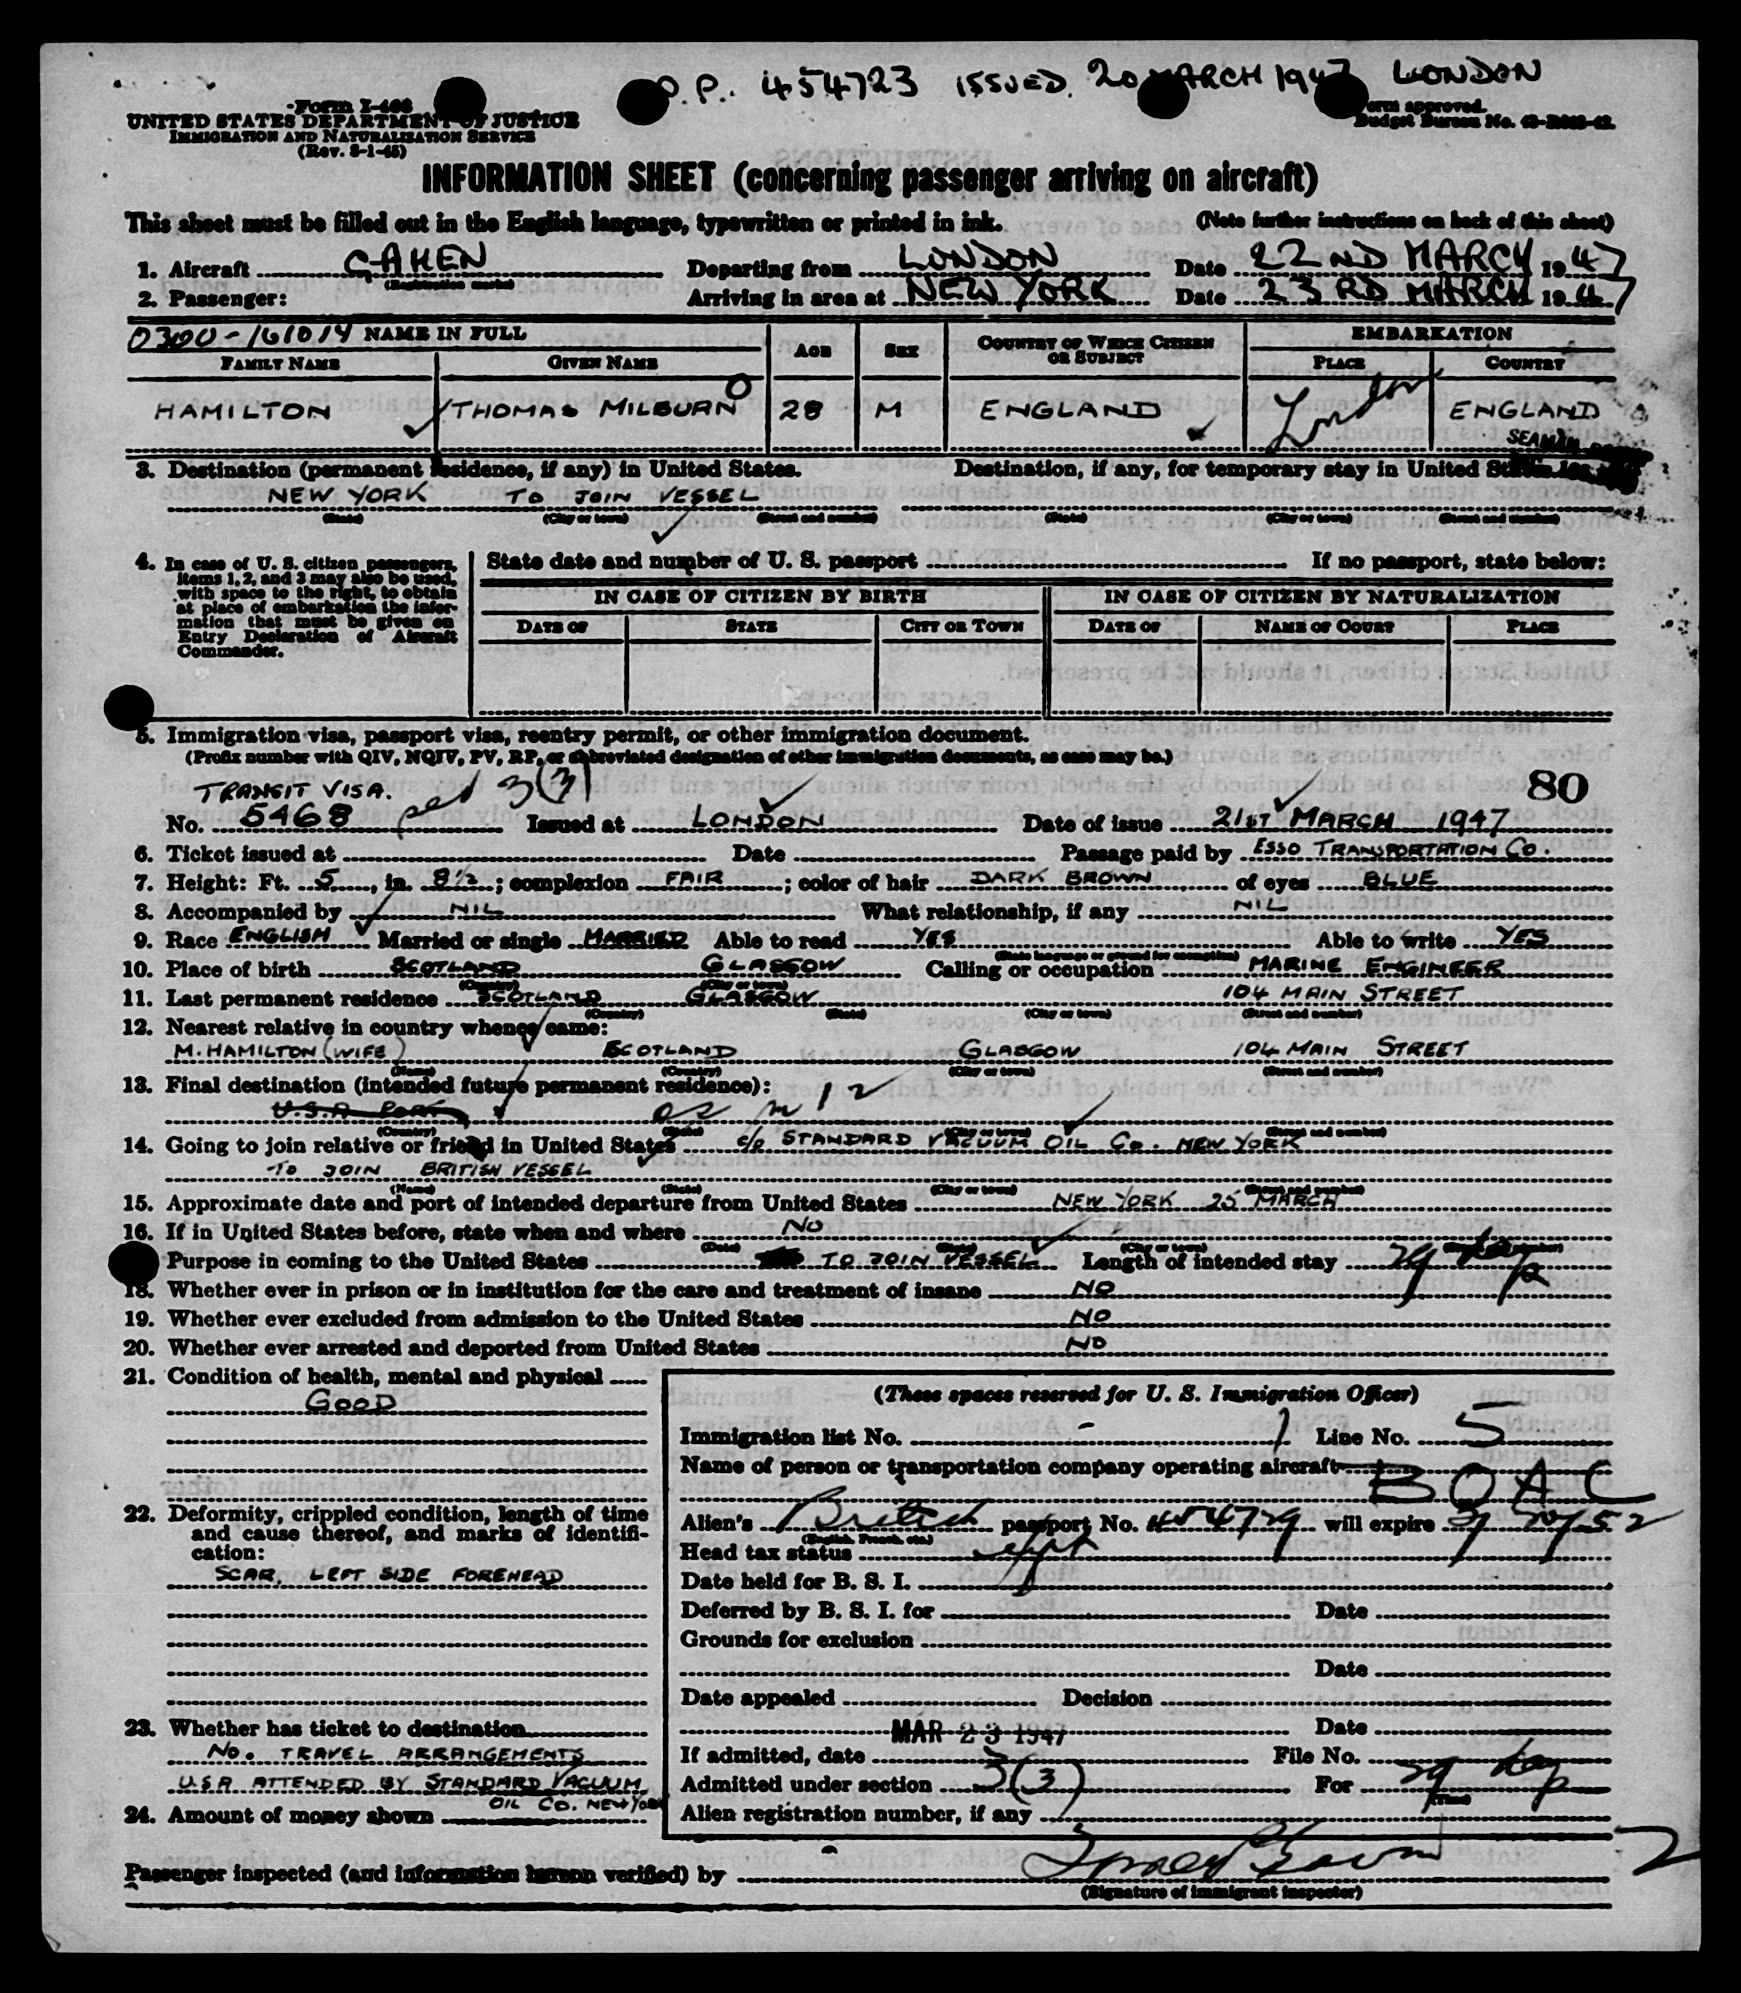 P. 454723 ISSUED. 20 MARCH 1947 LONDON
UNITED STATES DEPARTMENT OF JUSTICE
IMMIGRATION AND NATURALIZATION SERVICE
Form approved.
INFORMATION SHEET (concerning passenger arriving on aircraft)
This sheet must be filled out in the English language, typewritten or printed in ink. (Note further instructions on back of this sheet)
1. Aircraft G-AHEN Departing from LONDON Date 22ND MARCH 1947
(Registration marks)
2. Passenger: Arriving in area at NEW YORK Date 23RD MARCH 1947
0300-161014 NAME IN FULL AGE SEX COUNTRY OF WHICH CITIZEN OR SUBJECT EMBARKATION
FAMILY NAME GIVEN NAME PLACE COUNTRY
HAMILTON THOMAS MILBURN 28 M ENGLAND London ENGLAND
SEAMAN
3. Destination (permanent residence, if any) in United States. Destination, if any, for temporary stay in United States
NEW YORK TO JOIN VESSEL
(State) (City or town) (Street and number) (State) (City or town) (Street and number)
4. In case of U. S. citizen passengers, items 1, 2, and 3 may also be used, with space to the right, to obtain at place of embarkation the information that must be given on Entry Declaration of Aircraft Commander.
State date and number of U. S. passport If no passport, state below:
IN CASE OF CITIZEN BY BIRTH IN CASE OF CITIZEN BY NATURALIZATION
DATE OF STATE CITY OR TOWN DATE OF NAME OF COURT PLACE
5. Immigration visa, passport visa, reentry permit, or other immigration document.
(Prefix number with QIV, NQIV, PV, RP, or abbreviated designation of other immigration documents, as case may be.)
TRANSIT VISA. 3(3) 80
No. 5468 Issued at LONDON Date of issue 21ST MARCH 1947
6. Ticket issued at Date Passage paid by ESSO TRANSPORTATION CO.
7. Height: Ft. 5, in. 8½; complexion FAIR; color of hair DARK BROWN of eyes BLUE
8. Accompanied by NIL What relationship, if any NIL
9. Race ENGLISH Married or single MARRIED Able to read YES Able to write YES
(State language or ground for exemption)
10. Place of birth SCOTLAND GLASGOW Calling or occupation MARINE ENGINEER
(Country) (City or town)
11. Last permanent residence SCOTLAND GLASGOW 104 MAIN STREET
(Country) (State) (City or town) (Street and number)
12. Nearest relative in country whence came:
M. HAMILTON (WIFE) SCOTLAND GLASGOW 104 MAIN STREET
(Name) (Country) (City or town) (Street and number)
13. Final destination (intended future permanent residence):
as in 12
(Country) (State) (City or town) (Street and number)
14. Going to join relative or friend in United States c/o STANDARD VACUUM OIL Co. NEW YORK
TO JOIN BRITISH VESSEL
(Name) (State) (City or town) (Street and number)
15. Approximate date and port of intended departure from United States NEW YORK 25 MARCH
16. If in United States before, state when and where NO
(Date) (State) (City or town) (Street and number)
Purpose in coming to the United States TO JOIN VESSEL Length of intended stay 29 days
18. Whether ever in prison or in institution for the care and treatment of insane NO
19. Whether ever excluded from admission to the United States NO
20. Whether ever arrested and deported from United States NO
21. Condition of health, mental and physical
GOOD
22. Deformity, crippled condition, length of time and cause thereof, and marks of identification:
SCAR, LEFT SIDE FOREHEAD
23. Whether has ticket to destination
NO. TRAVEL ARRANGEMENTS
U.S.A ATTENDED BY STANDARD VACUUM
OIL CO. NEW YORK
24. Amount of money shown
(These spaces reserved for U. S. Immigration Officer)
Immigration list No. 1 Line No. 5
Name of person or transportation company operating aircraft
B O A C
Alien's British passport No. will expire
(English, French, etc.)
Head tax status
Date held for B. S. I.
Deferred by B. S. I. for Date
Grounds for exclusion
Date
Date appealed Decision
MAR 23 1947 Date
If admitted, date File No.
Admitted under section 3(3) For 29 days
(Time)
Alien registration number, if any
Passenger inspected (and information hereon verified) by
(Signature of immigrant inspector)
2